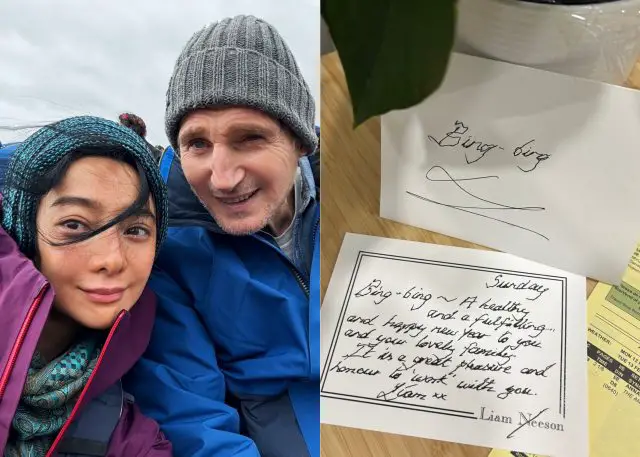 Bing-bing
Sunday
Bing-bing ~ A healthy
and a fulfilling...
and happy new year to you
and your lovely family.
It is a great pleasure and
honour to work with you.
Liam xx
Liam Neeson
WEATHER: